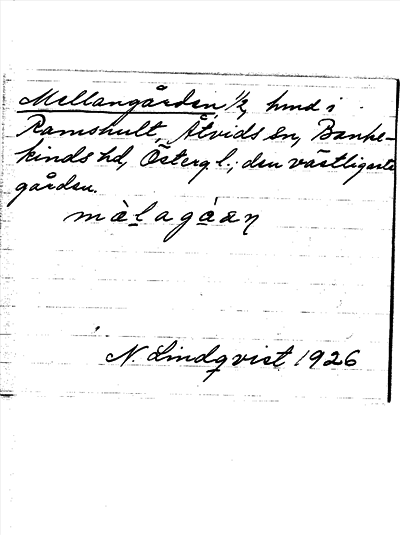 Mellangården, 1/2, hmd i
Ramshult, Åtvids sn, Banke-
kinds hd, Östergl.; den västligaste
gården.
màlagáan
N. Lindqvist 1926